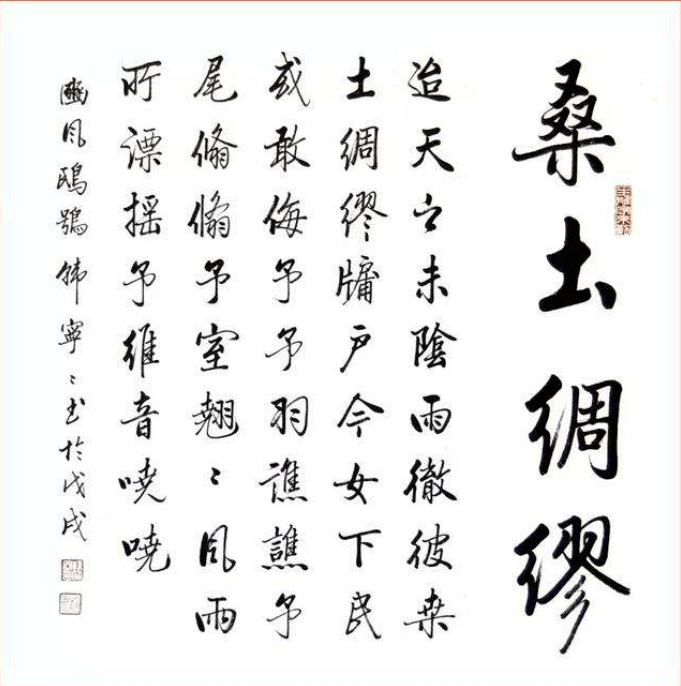 桑土綢繆
迨天之未陰雨徹彼桒
土綢繆牖戶今女下民
或敢侮予予羽譙譙予
尾翛翛予室翹〻風雨
所漂摇予維音嘵嘵
豳風鴟鴞 韩寧〻书於戊戌